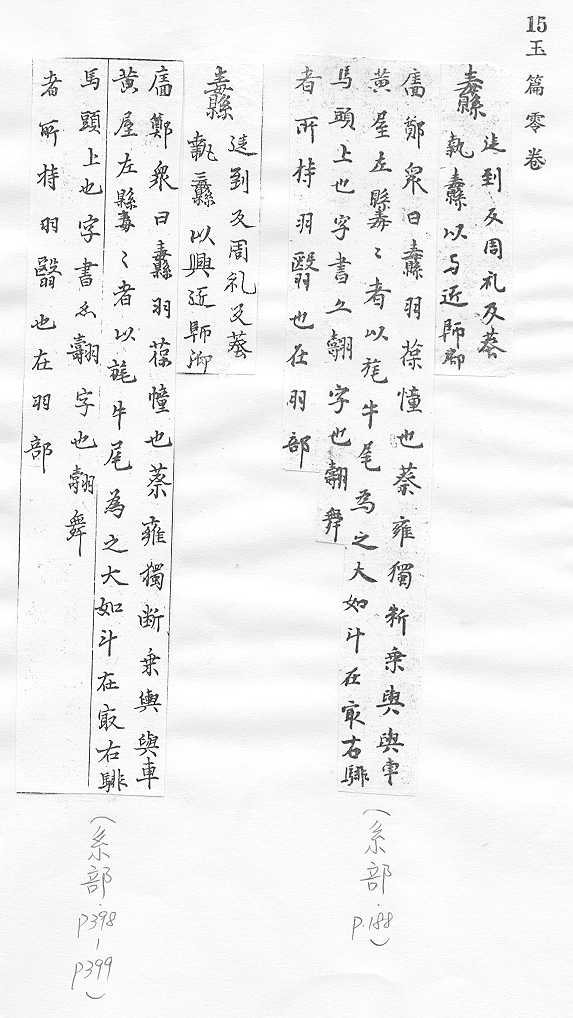 15 玉篇零卷
纛
徒到反周礼及葬
執纛以与近師御
廧鄭眾曰纛羽葆幢也蔡雍獨断乗輿輿車
黃屋左纛〻者以旄牛尾為之大如斗在冣右騑
馬頭上也字書亦翿字也翿舞
者所持羽翳也在羽部
(糸部 P.188)
纛
徒到反周礼及葬
執纛以與近師御
廧鄭眾曰纛羽葆幢也蔡雍獨断乗輿與車
黃屋左纛〻者以旄牛尾為之大如斗在冣右騑
馬頭上也字書亦翿字也翿舞
者所持羽翳也在羽部
(糸部・P398-P399)